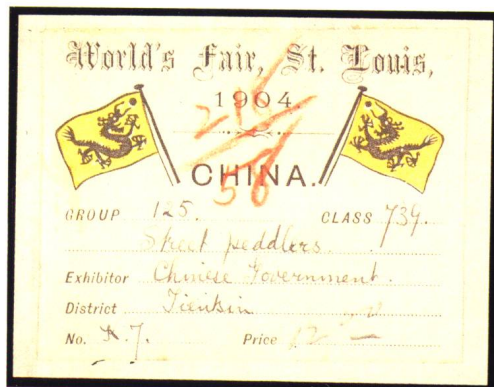 World's Fair, St. Louis,
1904
CHINA.
GROUP 125. CLASS 739.
Street peddlers.
Exhibitor Chinese Government.
District Tientsin
No. 7. Price